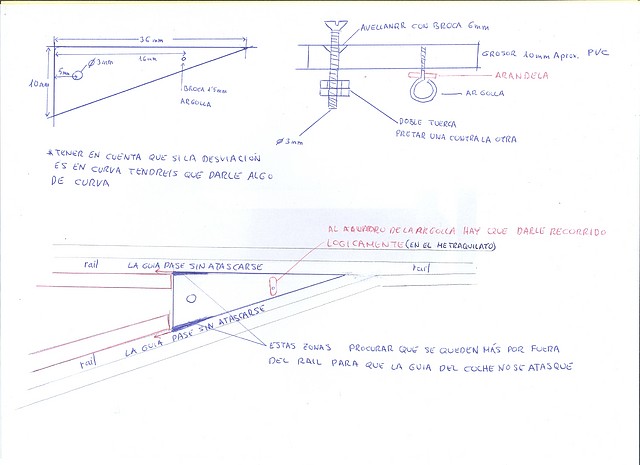 36 mm
16 mm
5mm
Ø 3mm
10mm
BROCA 1'5mm
ARGOLLA
AVELLANAR CON BROCA 6mm
GROSOR 10mm Aprox. PVC
ARANDELA
ARGOLLA
DOBLE TUERCA
PRETAR UNA CONTRA LA OTRA
Ø 3mm
* TENER EN CUENTA QUE SI LA DESVIACION
ES EN CURVA TENDREIS QUE DARLE ALGO
DE CURVA
AL AGUJERO DE LA ARGOLLA HAY QUE DARLE RECORRIDO
LOGICAMENTE (EN EL METRAQUILATO)
rail
LA GUIA PASE SIN ATASCARSE
rail
LA GUIA PASE SIN ATASCARSE
rail
ESTAS ZONAS PROCURAR QUE SE QUEDEN MÁS POR FUERA
DEL RAIL PARA QUE LA GUIA DEL COCHE NO SE ATASQUE